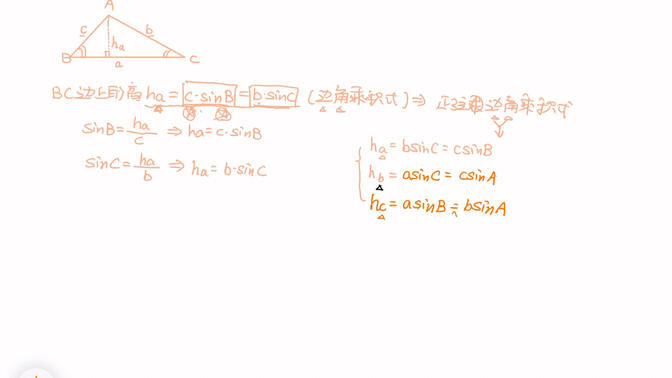 A
c
b
hₐ
B
C
a
BC边上的高 hₐ = c·sinB = b·sinC (边角乘积式) ⇒ 正弦边角乘积式
sinB = hₐ/c ⇒ hₐ = c·sinB
sinC = hₐ/b ⇒ hₐ = b·sinC
hₐ = bsinC = csinB
h_b = asinC = csinA
h_c = asinB = bsinA